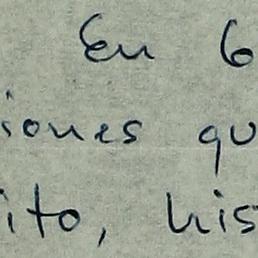 En 6
iones qu
ito, his